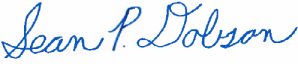 Sean P. Dobson